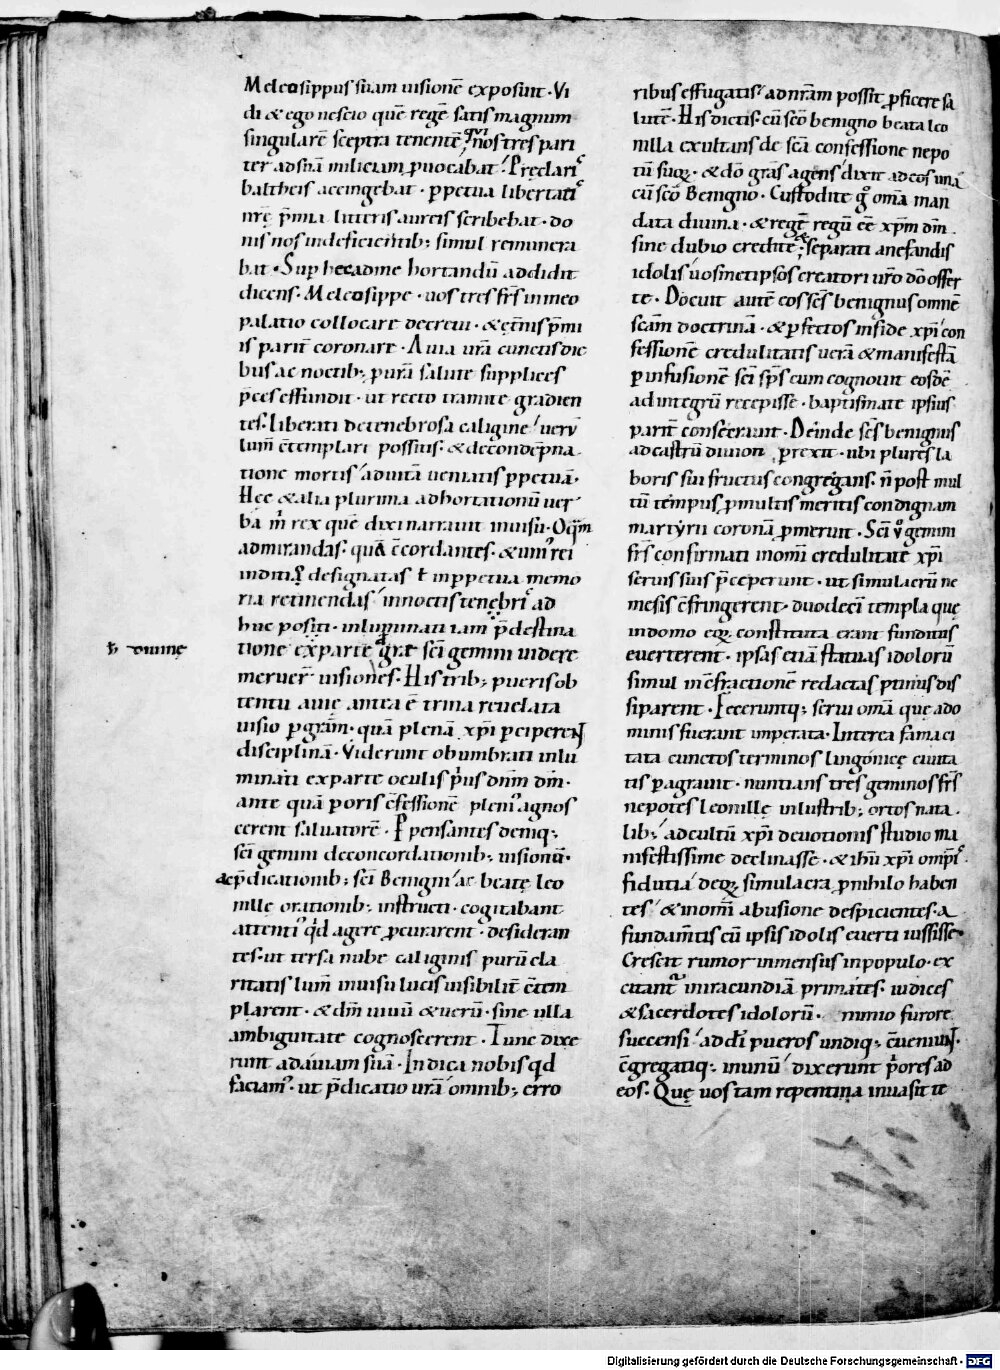 Meleosippus suam uisionē exposuit · Vi
di & ego nescio quē regē satis magnum
singularē sceptra tenentē, q̄ nos tres pari
ter ad suā miliciam ꝓuocabat · Preclari
baltheis accingebat · ꝑpetua libertati
nrē p̄mia litteris aureis scribebat · do
nis nos indeficientib; simul remunera
bat · Sup hec ad me hortandū addidit
dicens · Meleosippe · uos tres fr̄s in meo
palatio collocare decreui · & et̄nis p̄mi
is parit̄ coronare · Auia ur̄a cunctis die
bus ac noctib; ꝓ ur̄a salute supplices
p̄ces effundit · ut recto tramite gradien
tes · liberati de tenebrosa caligine uerū
lum̄ c̄templari possitis · & de condēpna
tione mortis ad uitā ueniatis ꝑpetuā ·
Hec & alia plurima adhortationū uer
ba m̄ rex quē dixi narrauit in uisu · O q̄m
admirandas · quā c̄cordantes · & uni rei
inditiū designatas ł in ꝑpetua memo
ria retinendas in noctis tenebris ad
huc positi · inluminati iam p̄destina
tione ex parte grae sc̄i gemini uidere
ħ diuine
meruer̄ uisiones · His trib; pueris ob
tentu auie antea ē trina reuelata
uisio ꝑ gram̄ · quā plenā xp̄i ꝑciperent
disciplinā · Viderunt obumbrati inlu
minati ex parte oculis p̄us dnm̄ dm̄ ·
ante quā ꝑ oris c̄fessionē pleni agnos
cerent saluatorē · Ppensantes deniq;
sc̄i gemini de concordationib; uisionū ·
ac p̄dicationib; sc̄i Benigni ac beate leo
nille orationib; instructi · cogitabant
attenti qd̄ agere ꝓcurarent · desideran
tes · ut tersa nube caliginis purū cla
ritatis lum̄ in uisu lucis uisibilit̄ c̄tem
plarent · & dm̄ uiuū & uerū · sine ulla
ambiguitate cognoscerent · Tunc dixe
runt ad auiam suā · Indica nobis qd̄
faciam' · ut p̄dicatio ur̄a omnib; erro
ribus effugatis ad nr̄am possit ꝓficere sa
lutē · His dictis · cū sc̄o benigno beata leo
nilla exultans de sc̄a confessione nepo
tū suoꝝ · & dō grās agens dixit ad eos unā
cū sc̄o Benigno · Custodite g̊ om̄a man
data diuina · & regē regū eē xp̄m dm̄
sine dubio credite, & separati a nefandis
idolis uosmetipsos creatori uro dō offer
te · Docuit autē eos sc̄s benignus omnē
sc̄am doctrinā · & ꝑfectos in fide xp̄i con
fessionē credulitatis uerā & manifestā
ꝑ infusionē sc̄i sp̄s eum cognouit eosdē
ad integrū recepisse · baptismate ipsius
parit̄ consecrauit · Deinde sc̄s benignus
ad castrū diuion ꝑrexit · ubi plures la
boris sui fructus congregans · n̄ post mul
tū tempus ꝓ multis meritis condignam
martyrii coronā ꝓmeruit · Sc̄i ů gemini
fr̄s confirmati in om̄i credulitate xp̄i
seruis suis p̄ceperunt · ut simulacrū ne
mesis c̄fringerent · duodeci templa que
in domo eoꝝ constituta erant funditus
euerterent · ipsas etiā statuas idolorū
simul in c̄fractionē redactas ꝓtinus dis
siparent · Feceruntq; serui om̄a que a do
minis fuerant imperata · Interea fama ci
tata cunctos terminos lingonice ciuita
tis ꝑagrauit · nuntians tres geminos fr̄s
nepotes leonille in lustrib; ortos nata
lib; ad cultū xp̄i deuotionis studio ma
nifestissime declinasse · & ihū xp̄i omp̄i'
fidutia deoꝝ simulacra ꝓ nihilo haben
tes & in om̄i abusione despicientes · a
fundam̄tis cū ipsis idolis euerti iussisse ·
Crescit rumor inmensus in populo · ex
citant' in iracundiā primates · iudices
& sacerdotes idolorū · nimio furore
succensi ad dc̄i pueros undiq; c̄ueniunt ·
c̄gregatiq; in unū dixerunt p̄ores ad
eos · Que uos tam repentina inuasit te